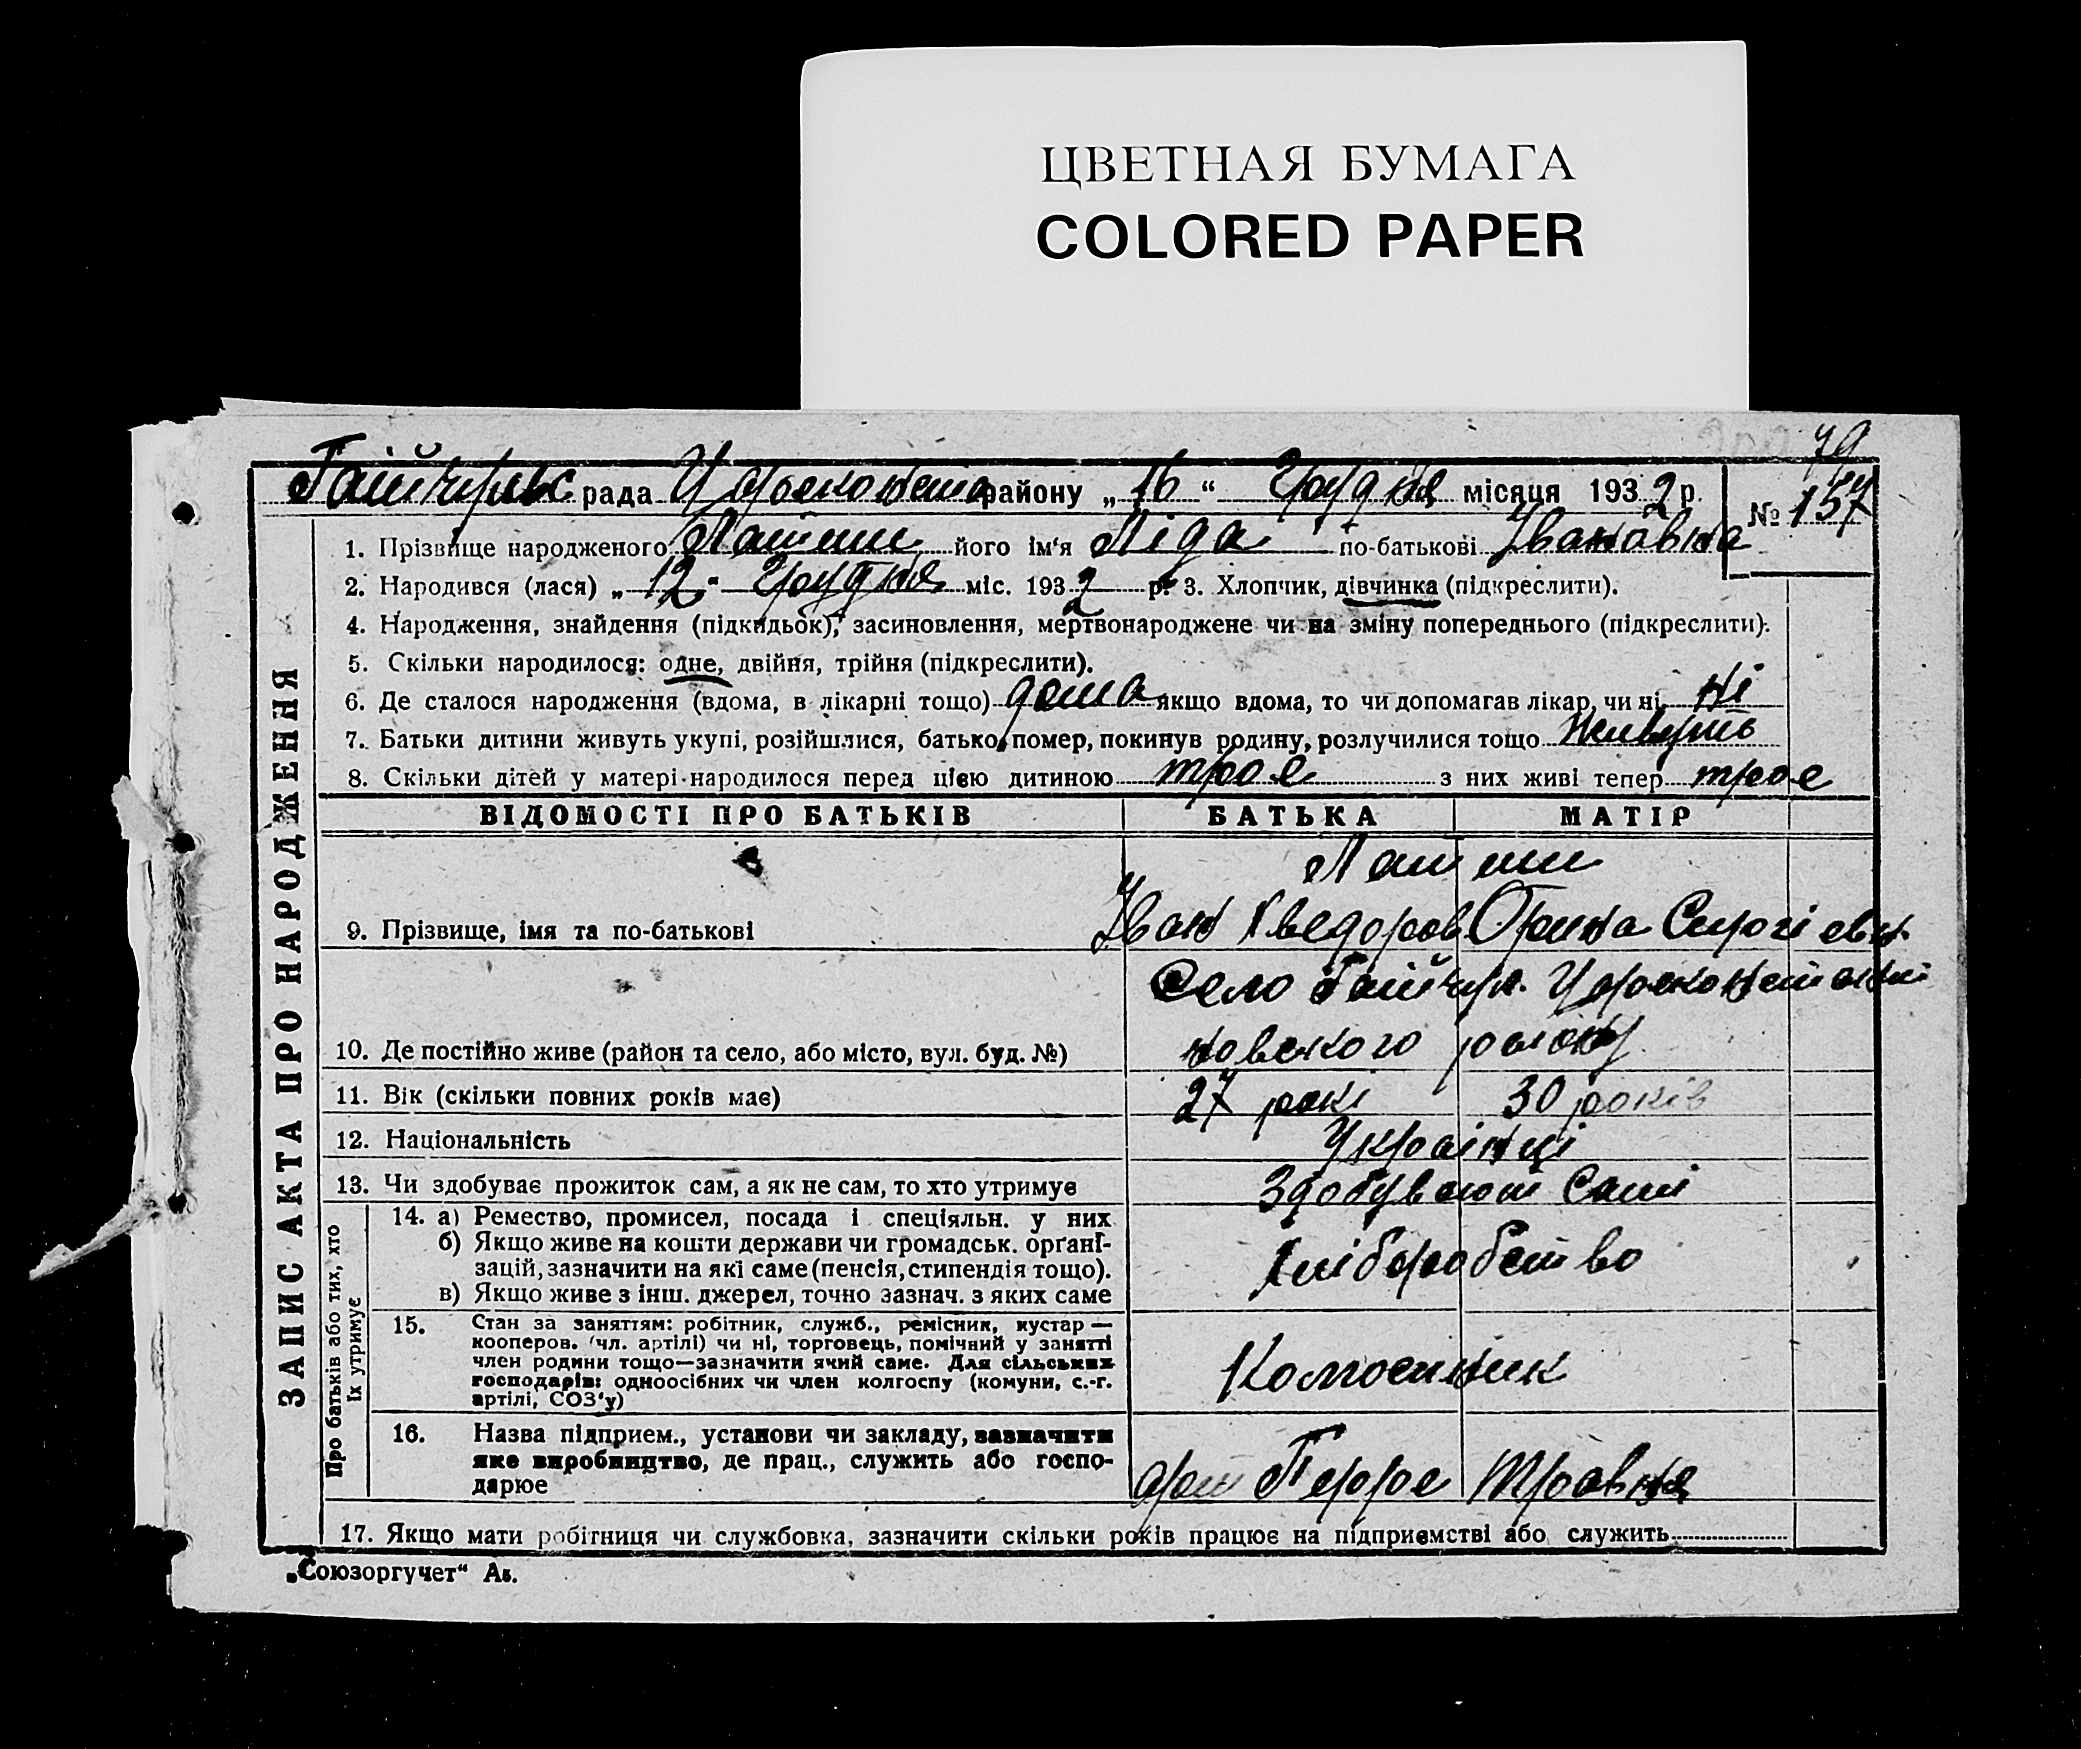 ЦВЕТНАЯ БУМАГА
COLORED PAPER
79
Гайчульс рада Царекон районy „16“ Грудня місяця 1932 р. № 157
1. Прізвище народженого його ім‘я Ліда по-батькові Івановна
2. Народився (лася) „12 грудня міс. 1932 р. 3. Хлопчик, дівчинка (підкреслити).
4. Народження, знайдення (підкидьок), засиновлення, мертвонароджене чи на зміну попереднього (підкреслити).
5. Скільки народилося: одне, двійня, трійня (підкреслити).
6. Де сталося народження (вдома, в лікарні тощо) дома якщо вдома, то чи допомагав лікар, чи ні ні
7. Батьки дитини живуть укупі, розійшлися, батько помер, покинув родину, розлучилися тощо Живуть
8. Скільки дітей у матері народилося перед цією дитиною троє з них живі тепер троє
ВІДОМОСТІ ПРО БАТЬКІВ БАТЬКА МАТІР
9. Прізвище, імя та по-батькові Іван Хведоров Орина Сергієвн
Село Гайчул.
10. Де постійно живе (район та село, або місто, вул. буд. №) новского району
11. Вік (скільки повних років має) 27 рокі 30 років
12. Національність Українці
13. Чи здобуває прожиток сам, а як не сам, то хто утримує Здобувают сами
14. а) Ремество, промисел, посада і спеціяльн. у них
б) Якщо живе на кошти держави чи громадськ. орґанї-
зацій, зазначити на які саме (пенсія, стипендія тощо).
в) Якщо живе з інш. джерел, точно зазнач. з яких саме
Хліборобство
15. Стан за заняттям: робітник, служб., ремісник, кустар —
кооперов. (чл. артілі) чи ні, торговець, помічний у занятті
член родини тощо—зазначити який саме. Для сільських
господарів: одноосібних чи член колгоспу (комуни, с.-г.
артілі, СОЗ‘у)
Колгоспник
16. Назва підприєм., установи чи закладу, зазначити
яке виробництво, де прац., служить або госпо-
дарює
арт Перше Травня
17. Якщо мати робітниця чи службовка, зазначити скільки років працює на підприємстві або служить
ЗАПИС АКТА ПРО НАРОДЖЕННЯ
Про батьків або тих, хто
їх утримує
„Союзоргучет“ Ав.